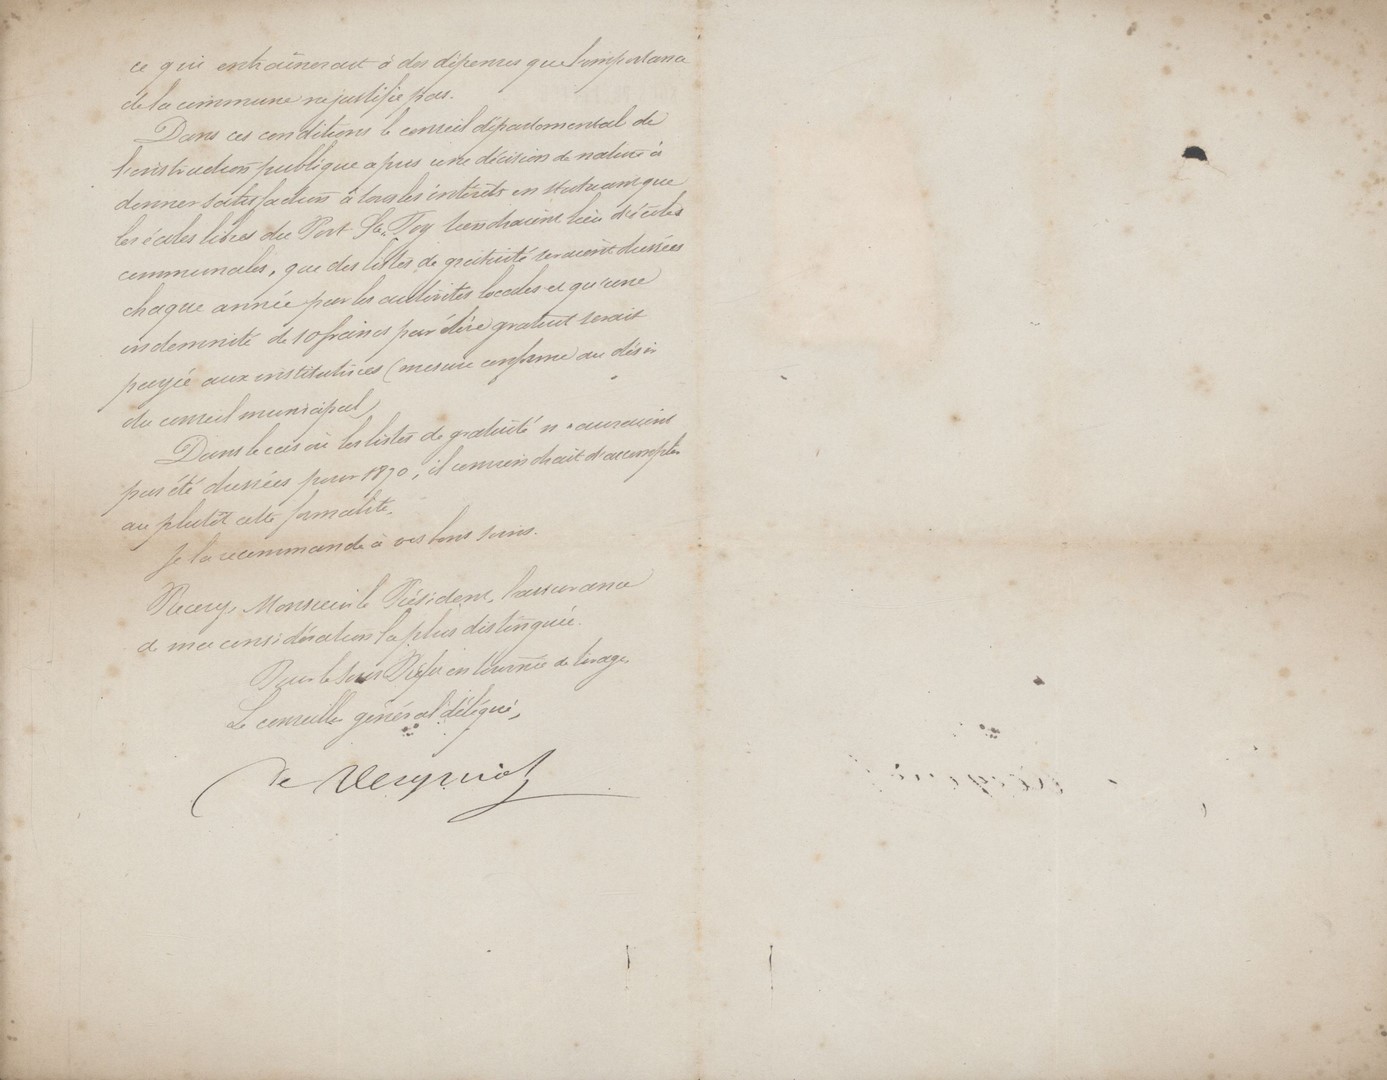 ce qui entraînerait à des dépenses que l'importance
de la commune ne justifie pas.
Dans ces conditions le conseil départemental de
l'instruction publique a pris une décision de nature à
donner satisfaction à tous les intérêts en statuant que
les écoles libres du Port Ste Foy tiendraient lieu d'écoles
communales, que des listes de gratuité seraient dressées
chaque année par les autorités locales et qu'une
indemnité de 10 francs par élève gratuit serait
payée aux institutrices (mesure conforme au désir
du conseil municipal)
Dans le cas où les listes de gratuité n'auraient
pas été dressées pour 1870, il conviendrait d'accomplir
au plutôt cette formalité.
Je la recommande à vos bons soins.
Recevez, Monsieur le Président, l'assurance
de ma considération la plus distinguée.
Pour le Sous Préfet en tournée de tirage,
Le conseiller général délégué,
de